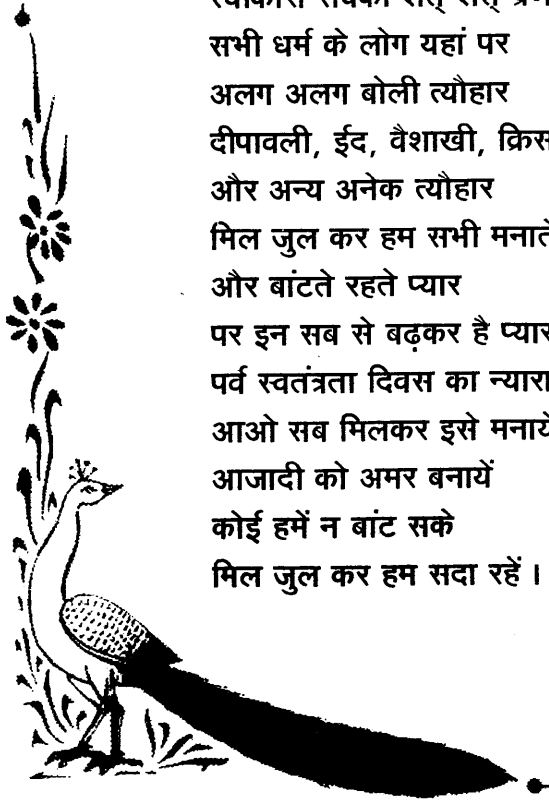 सभी धर्म के लोग यहां पर
अलग अलग बोली त्यौहार
दीपावली, ईद, वैशाखी,
और अन्य अनेक त्यौहार
मिल जुल कर हम सभी मनाते
और बांटते रहते प्यार
पर इन सब से बढ़कर है
पर्व स्वतंत्रता दिवस का न्यारा
आओ सब मिलकर इसे मनायें
आजादी को अमर बनायें
कोई हमें न बांट सके
मिल जुल कर हम सदा रहें ।